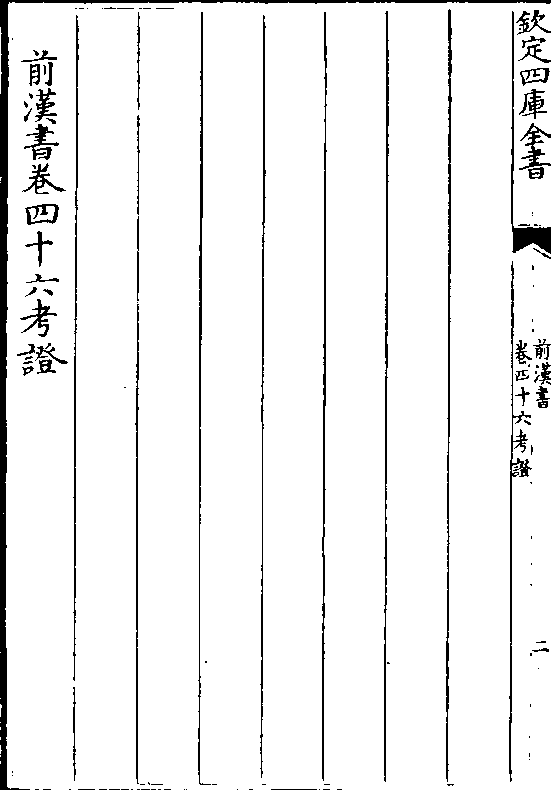 欽定四庫全書
前漢書
卷四十六考證
二
前漢書卷四十六考證